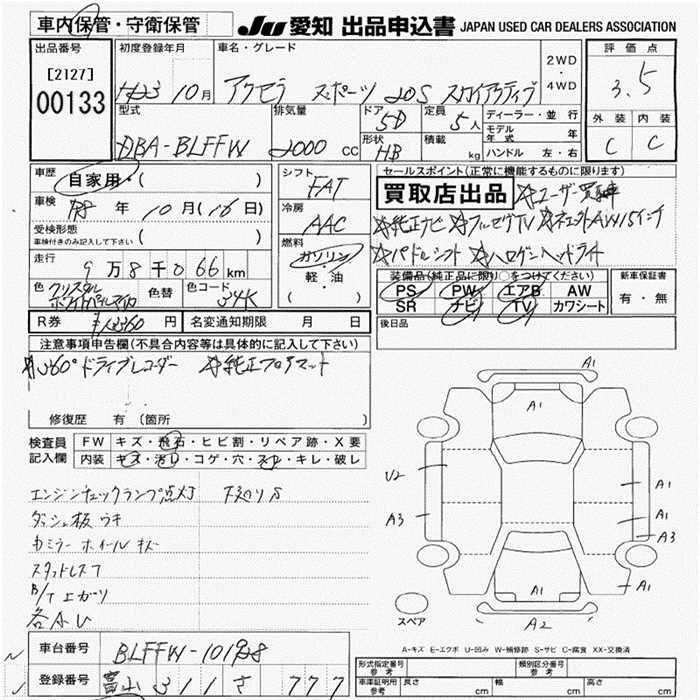 車内保管・守衛保管
JU 愛知 出品申込書 JAPAN USED CAR DEALERS ASSOCIATION
出品番号
[2127]
00133
初度登録年月
H23 10月
車名・グレード
アクセラ スポーツ 20S スカイアクティブ
2WD
・
4WD
評価点
3.5
外装 内装
C C
型式
DBA-BLFFW
排気量
2000 cc
ドア
5D
定員
5人
形状
HB
積載
kg
ディーラー・並行
モデル年式 年
ハンドル 左・右
車歴
自家用・( )
車検
R8 年 10月(16日)
受検形態
車検付きのみ記入して下さい ( )
走行
9万8千066km
色 クリスタルホワイトパール
色替
色コード
34K
R券
円
名変通知期限 月 日
シフト
FAT
冷房
AAC
燃料
ガソリン・
軽・油
( )
セールスポイント(正常に機能するものに限ります)
買取店出品 ☆ユーザー買取車
☆純正ナビ ☆フルセグTV ☆純正AW15インチ
☆パドルシフト ☆ハロゲンヘッドライト
装備品(純正品に限り○をつけてください)
PS PW エアB AW
SR ナビ TV カワシート
新車保証書
有・無
後日品
注意事項申告欄(不具合内容等は具体的に記入して下さい)
☆360°ドライブレコーダー ☆純正フロアマット
修復歴 有 (箇所 )
検査員記入欄
FW キズ・飛石・ヒビ割・リペア跡・X要
内装 キズ・汚れ・コゲ・穴・スレ・キレ・破レ
エンジンチェックランプ点灯 下廻りS
ダッシュ板 ウキ
カミラー ホイール キズ
スタッドレス7
B/T 上ガリ
各AU
A1
A1
U2
A1
A1
A3
A3
A1
A1
A2
スペア
A-キズ E-エクボ U-凹み W-補修跡 S-サビ C-腐食 XX-交換済
車台番号
BLFFW-101928
登録番号
富山 311 さ 777
形式指定番号
参考
類別区分番号
参考
車庫証明用
参考
長さ cm
幅 cm
高さ cm